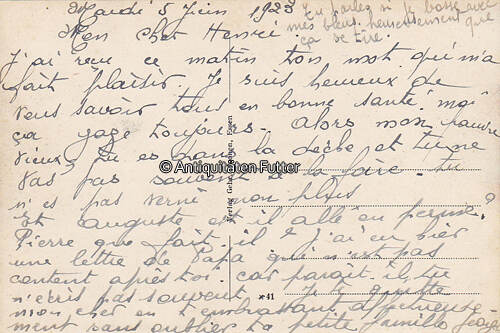 Mardi 5 Juin 1923
Tu parles si je bosse avec
mes bleus. heureusement que
ça se tire.
Mon cher Henri
J'ai reçu ce matin ton mot qui m'a
fait plaisir Je suis heureux de
vous savoir tous en bonne santé. moi
ça gaze toujours. Alors mon pauvre
vieux. Tu es dans la dèche et tu ne
vas pas souvent à la foire. tu
n'es pas verni non plus
Et auguste est il allé en perme?
Pierre que fait-il? J'ai eu hier
une lettre de Papa qui n'est pas
content après toi. car parait-il tu
n'écris pas souvent. Je te quitte
mon cher en t'embrassant affectueuse
ment sans oublier ta petite famille Jean
Verlag Gebr. Essen
*41
© Antiquitäten Futter